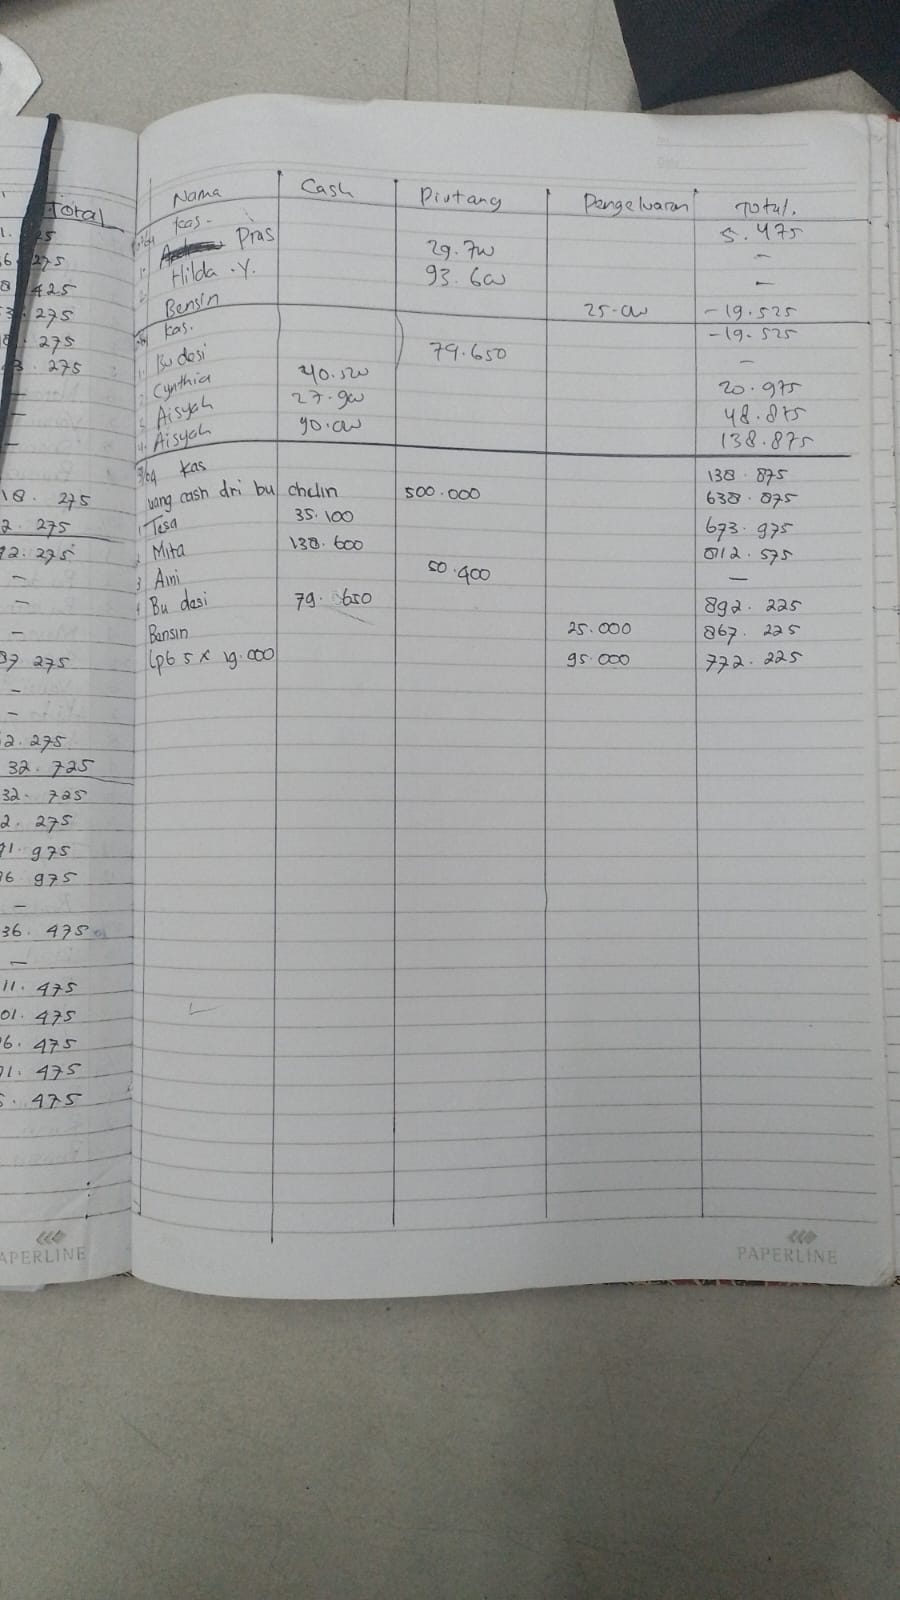 Total
275
425
275
275
275
18. 275
2. 275
275
275
2. 275
32. 725
32. 725
2. 275
975
975
36. 475
11. 475
01. 475
475
475
475
PAPERLINE
Nama Cash Piutang Pengeluaran Total.
Kas. 5.475
1. Pras 29.700 -
2. Hilda .Y. 93.600 -
Bensin 25.000 -19.525
Kas. -19.525
1. Bu desi 79.650 -
2. Cynthia 40.500 20.975
3. Aisyah 27.900 48.875
4. Aisyah 90.000 138.875
Kas 138.875
uang cash dri bu chelin 500.000 638.875
1 Tesa 35.100 673.975
2 Mita 138.600 812.575
3 Ami 50.400 -
4 Bu desi 79.650 892.225
Bensin 25.000 867.225
Lpb 5 x 19.000 95.000 772.225
PAPERLINE